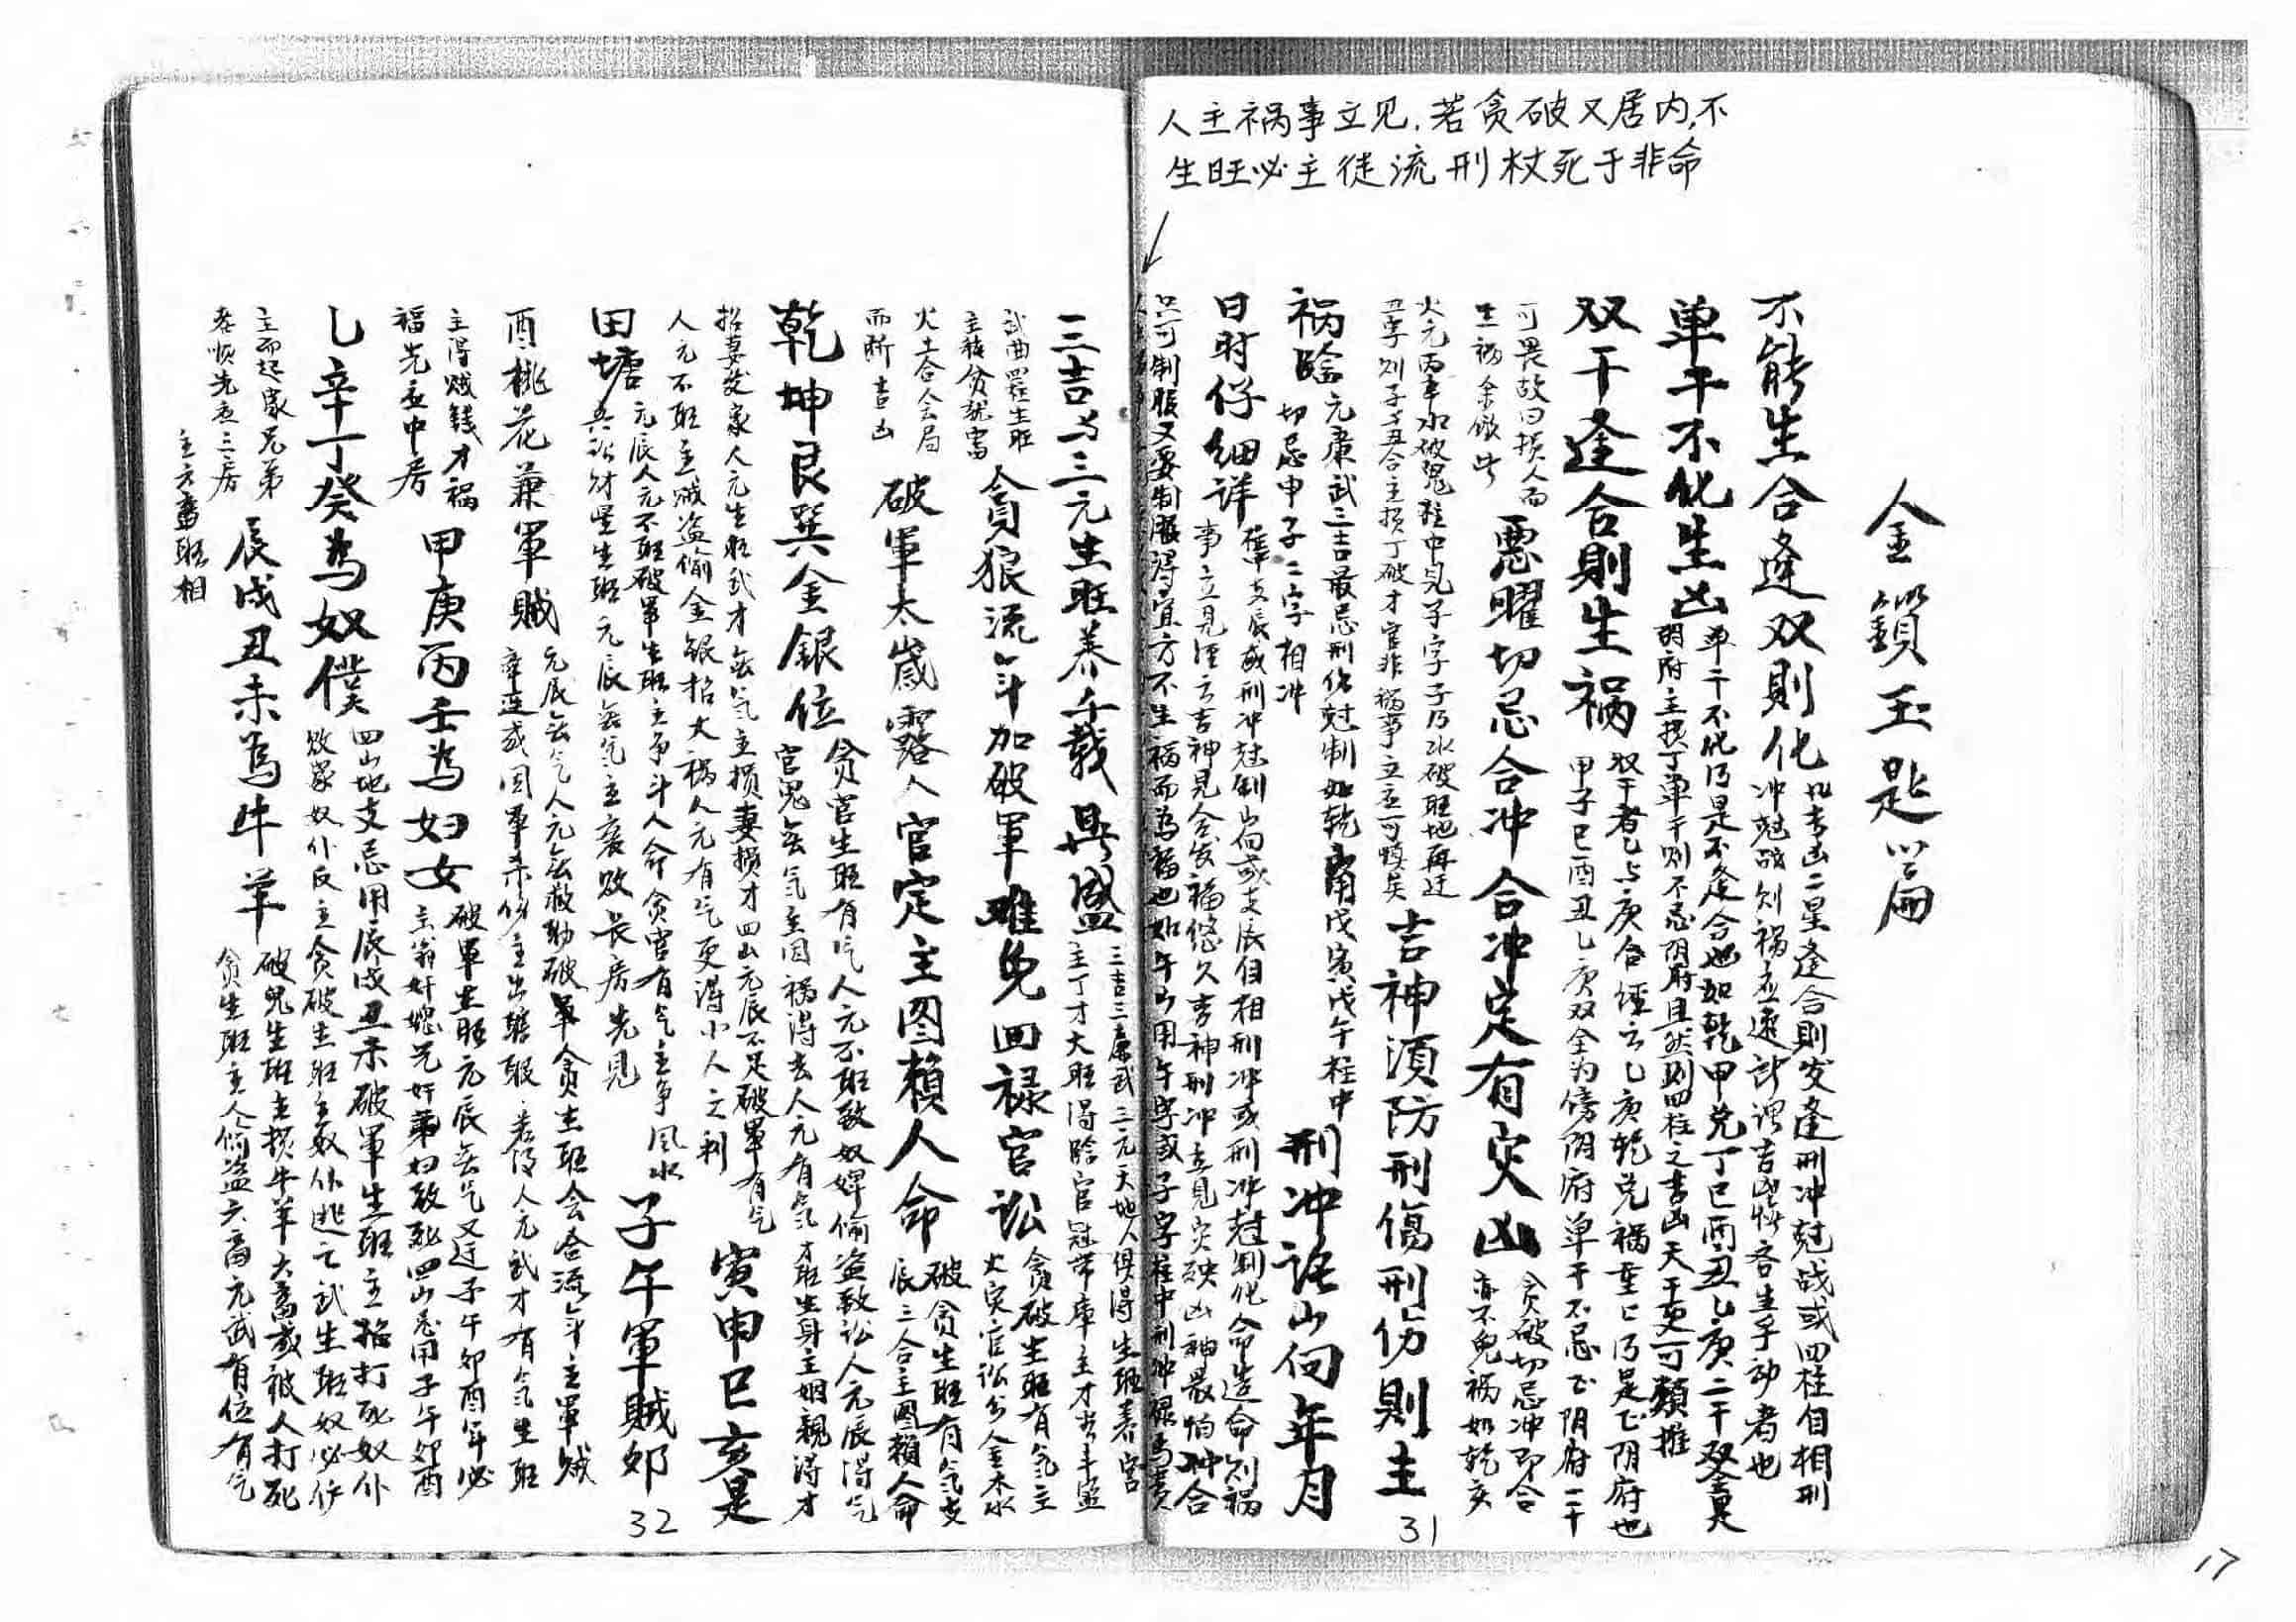 人主祸事立见,若贪破又居内,不
生旺必主徒流刑杖死于非命
金鎖玉匙篇
不能生合逢双則化
凶吉凶二星逢合則发逢刑冲尅战或四柱自相刑
冲尅战则祸立速
单干不化生凶
单干不化乃是不逢合也如乾甲兑丁巳酉丑乙庚二干双全是
阴府主损丁单干则不忌阴府且然则四柱之吉凶天干更可類推
双干逢合則生祸
双干者乙与庚合经云乙庚乾兑祸重亡乃是正阴府也
甲子巳酉丑乙庚双全为傍阴府单干不忌正阴府二干
可畏故曰损人而
生祸余倣此
惡曜切忌合冲合冲定有灾凶
贪破切忌冲即合
亦不免祸如乾亥
火元丙辛水破鬼柱中见子字子乃水破旺地再逢
丑字则子与丑合主损丁破才官非祸事立至可慎矣
吉神須防刑傷刑伤則主
祸險
元廉武三吉最忌刑伤尅制如乾用戊寅戊午柱中
切忌申子二字相冲
刑冲誥山向年月
日时仔细详
支辰或刑冲尅倒山向或支辰自相刑冲或刑冲尅制化命造命则祸
事立见经云吉神见合发福悠久吉神刑冲立见灾殃凶神最怕冲合
只可制服又要制服得宜方不生祸而為福也如午山用午字或子字柱中刑冲禄马贵
31
三吉与三元生旺养千载興盛
三吉三廉武三元天地人俱得生旺养宫
主丁才大旺得临官冠带库主才出丰盈
武曲罡生旺
主發贪號富
贪狼流年加破軍难免回禄官訟
贪破生旺有气主
火灾官讼分金木水
火土合人公局
而断吉凶
破軍太歲露人官定主图賴人命
破贪生旺有气支
辰三合主图賴人命
乾坤艮巽金銀位
贪官生旺有气人元不旺致奴婢偷盗致讼人元辰得气
官鬼無气主因祸得去人元有气才旺生身主姻親得才
招妻发家人元生旺武才無气主损妻损才四山元辰不足破軍有气
人元不旺主贼盗偷金銀招大祸人元有气更得小人之利
寅申巳亥是
田塘
元辰人元不旺破軍生旺主争斗人命贪官有气主争風水
兵訟财星生旺元辰無气主衰败长房先見
子午軍賊卯
酉桃花兼軍贼
元辰無气人元無救助破軍贪生旺会合流年主軍贼
牵连或因軍杀伤主出瞎眼若得人元武才有气生旺
主得贼钱才祸
福先应中房
甲庚丙壬為妇女
破軍生旺元辰無气又逢子午卯酉年必
主翁奸媳兄奸弟妇致死四山忌用子午卯酉
乙辛丁癸為奴僕
四山地支忌用辰戌丑未破軍生旺主招打死奴仆
败家奴仆反主贪破生旺主奴仆逃亡武生旺奴必作
主而起家兄弟
孝順先应三房
辰戌丑未為牛羊
破鬼生旺主损牛羊六畜或被人打死
贪生旺主人偷盗六畜元武有位有气
主六畜旺相
32
17